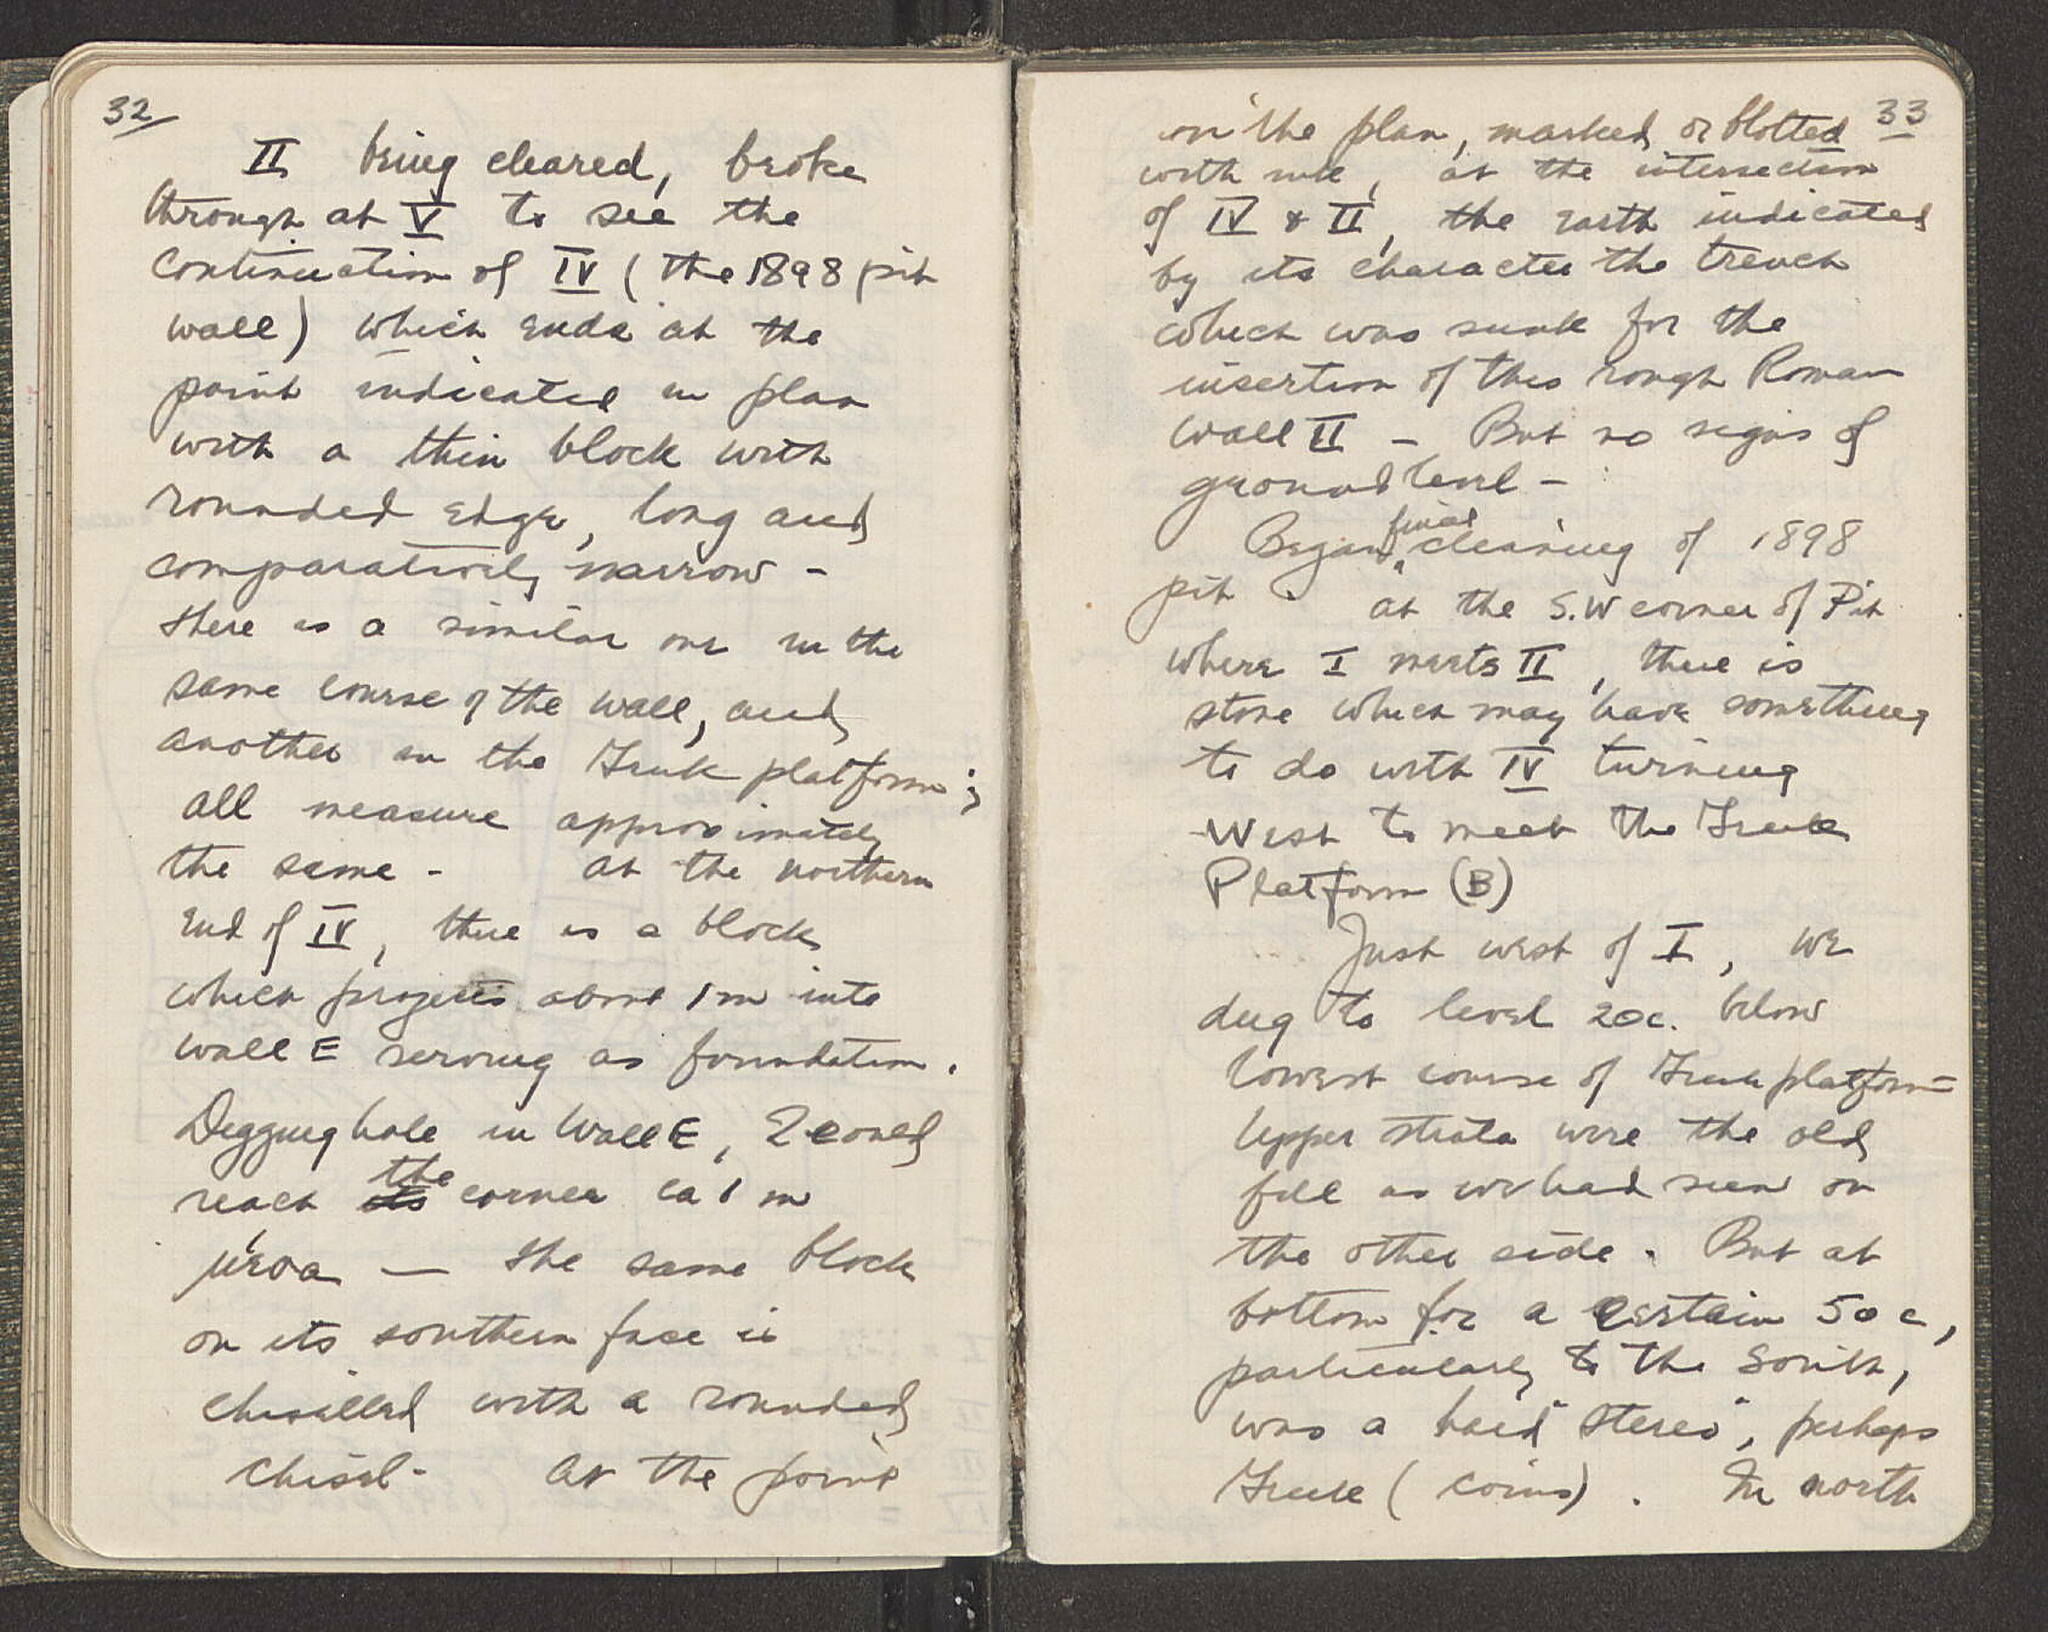 32
II being cleared, broke
through at V to see the
continuation of IV (the 1898 pit
wall) which ends at the
point indicated in plan
with a thin block with
rounded edge, long and
comparatively narrow -
there is a similar one in the
same course of the wall, and
another in the Greek platform;
all measure approximately
the same - at the northern
end of IV, there is a block
which projects about 1 m into
wall E serving as foundation.
Digging hole in Wall E, I could
reach the corner ca 1 m
μέσα — the same block
on its southern face is
chiselled with a rounded
chisel - At the point
33
on the plan, marked or blotted
with ink, at the intersection
of IV & II, the earth indicated
by its character the trench
which was sunk for the
insertion of this rough Roman
wall II - But no signs of
ground level -
Began final cleaning of 1898
pit. at the S.W corner of Pit
where I meets II, there is
stone which may have something
to do with IV turning
West to meet the Greek
Platform (B)
Just west of I, we
dug to level 20c. below
lowest course of Greek platform -
Upper strata were the old
fill as we had seen on
the other side. But at
bottom for a certain 50 c,
particularly to the South,
was a hard "stereo", perhaps
Greek (coins). In north